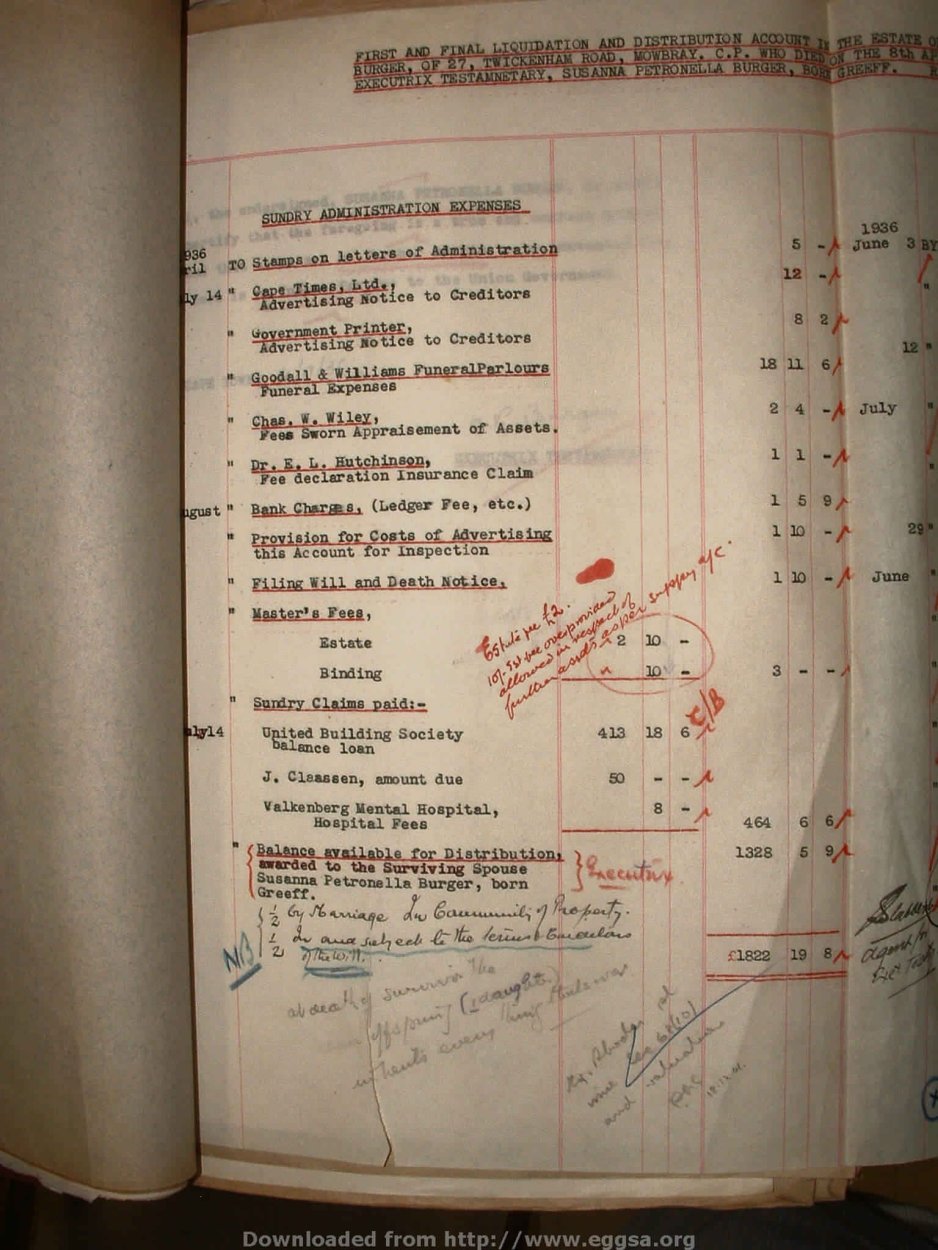 FIRST AND FINAL LIQUIDATION AND DISTRIBUTION ACCOUNT IN THE ESTATE O
BURGER, OF 27, TWICKENHAM ROAD, MOWBRAY, C.P. WHO DIED ON THE 8th AP
EXECUTRIX TESTAMNETARY, SUSANNA PETRONELLA BURGER, BORN GREEFF.
SUNDRY ADMINISTRATION EXPENSES
1936
936
ril TO Stamps on letters of Administration 5 - June 3 BY
ly 14 " Cape Times, Ltd., 12 -
Advertising Notice to Creditors
" Government Printer, 8 2
Advertising Notice to Creditors 12 "
" Goodall & Williams FuneralParlours 18 11 6
Funeral Expenses
" Chas. W. Wiley, 2 4 - July "
Fees Sworn Appraisement of Assets.
" Dr. E. L. Hutchinson, 1 1 -
Fee declaration Insurance Claim
ugust " Bank Charges, (Ledger Fee, etc.) 1 5 9
" Provision for Costs of Advertising 1 10 - 29 "
this Account for Inspection
" Filing Will and Death Notice, 1 10 - June "
" Master's Fees,
Estate fee £2.
10/- Est fee overprovided
allowed in respect of
further assets as per supply a/c.
Estate 2 10 -
Binding 10 - 3 - -
" Sundry Claims paid:-
C/B
uly14 United Building Society 413 18 6
balance loan
J. Claassen, amount due 50 - -
Valkenberg Mental Hospital, 8 -
Hospital Fees 464 6 6
" Balance available for Distribution, 1328 5 9
awarded to the Surviving Spouse
Susanna Petronella Burger, born Executrix
Greeff.
½ by Marriage In Community of Property.
½ In and subject to the terms & conditions
of the Will.
NB
£1822 19 8
agent for
at death of survivor the
offspring (1 daughter)
inherits every thing
and valuation
Downloaded from http://www.eggsa.org